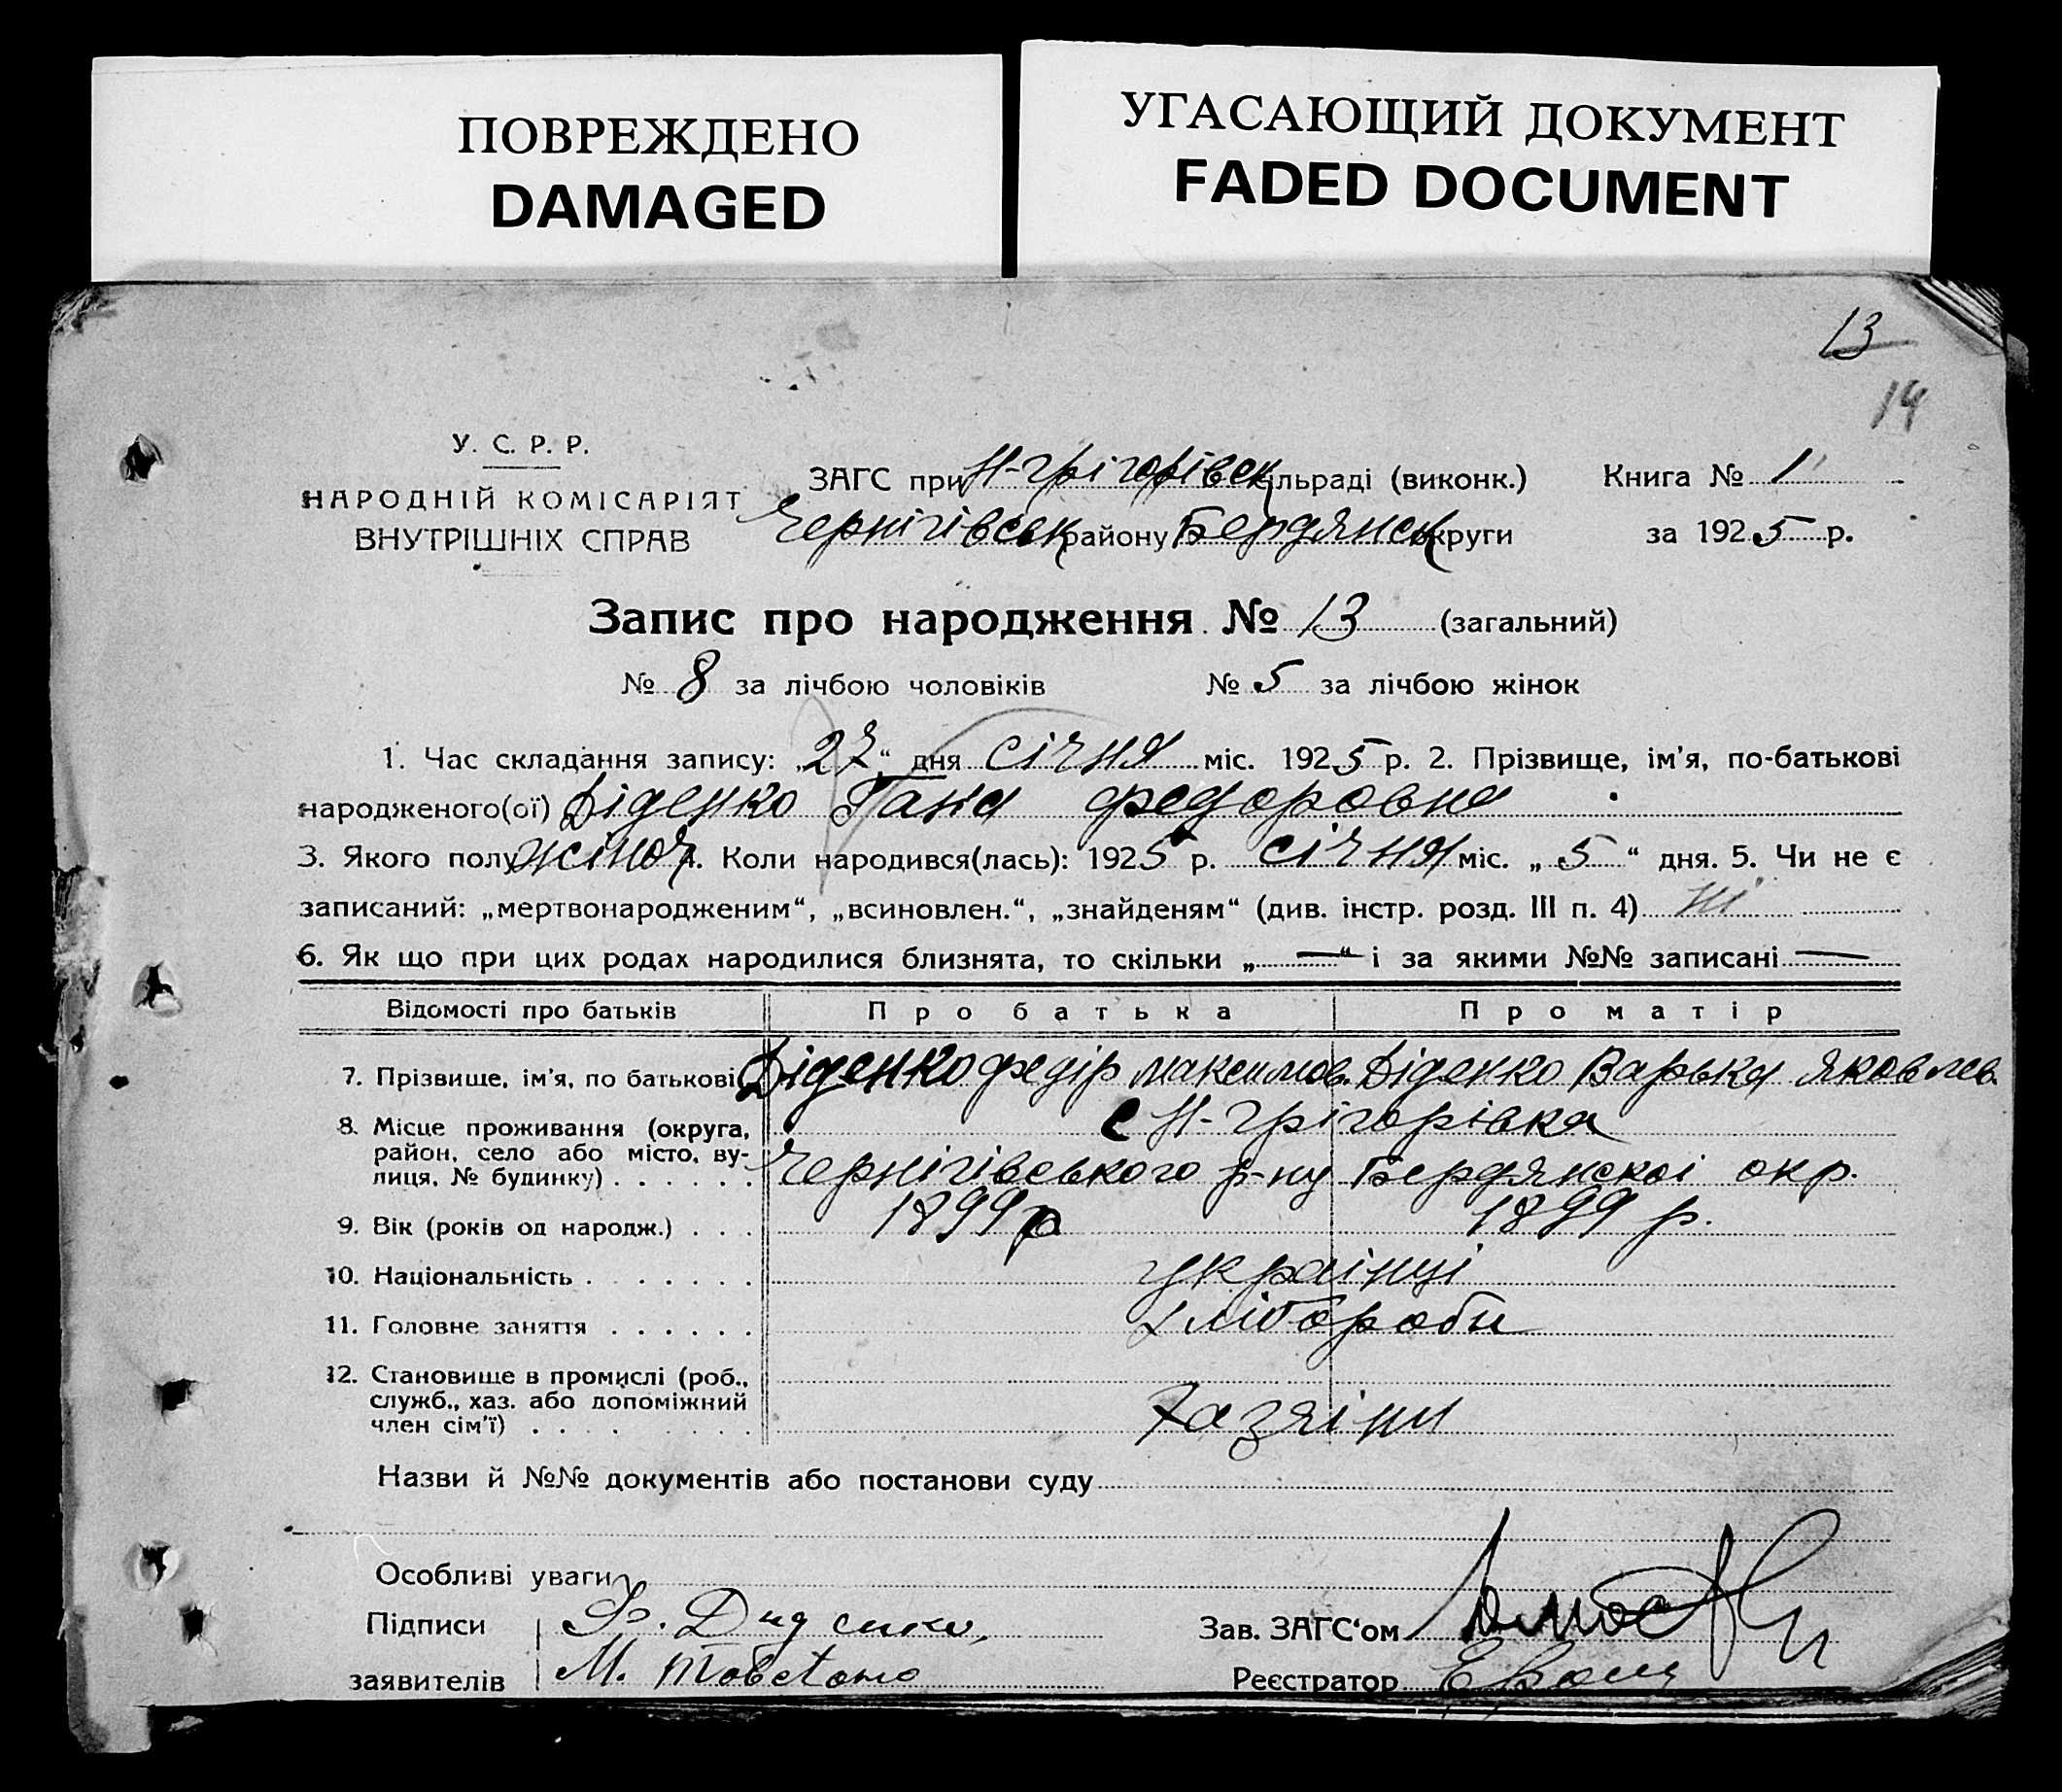 ПОВРЕЖДЕНО
DAMAGED
УГАСАЮЩИЙ ДОКУМЕНТ
FADED DOCUMENT
13
14
У. С. Р. Р.
НАРОДНІЙ КОМІСАРІЯТ
ВНУТРІШНІХ СПРАВ
ЗАГС при Н-Грігорівськ ільраді (виконк.) Книга № 1
Чернігівськ району Бердянськ округи за 1925 р.
Запис про народження № 13 (загальний)
№ 8 за лічбою чоловіків № 5 за лічбою жінок
1. Час складання запису: „27“ дня січня міс. 1925 р. 2. Прізвище, ім'я, по-батькові
народженого(ої) Діденко Ганя Федоровна
3. Якого полу жіноч 4. Коли народився(лась): 1925 р. січня міс. „5“ дня. 5. Чи не є
записаний: „мертвонародженим“, „всиновлен.“, „знайденям“ (див. інстр. розд. III п. 4) Ні
6. Як що при цих родах народилися близнята, то скільки „—“ і за якими №№ записані —
Відомості про батьків Про батька Про матір
7. Прізвище, ім'я, по батькові Діденко Федір Максимов. Діденко Варька Яковлев.
8. Місце проживання (округа, район, село або місто, вулиця, № будинку) . . . . . . с Н-Грігорівка
Чернігівського р-ну Бердянскоі окр.
9. Вік (років од народж.) . . . 1899 р 1899 р.
10. Національність . . . . . . . українці
11. Головне заняття . . . . . . хлібороби
12. Становище в промислі (роб., служб., хаз. або допоміжний член сім'ї) . . . . . . . . Хазяіни
Назви й №№ документів або постанови суду
Особливі уваги
Підписи Ф. Диденко, Зав. ЗАГС'ом
заявителів М. Реєстратор